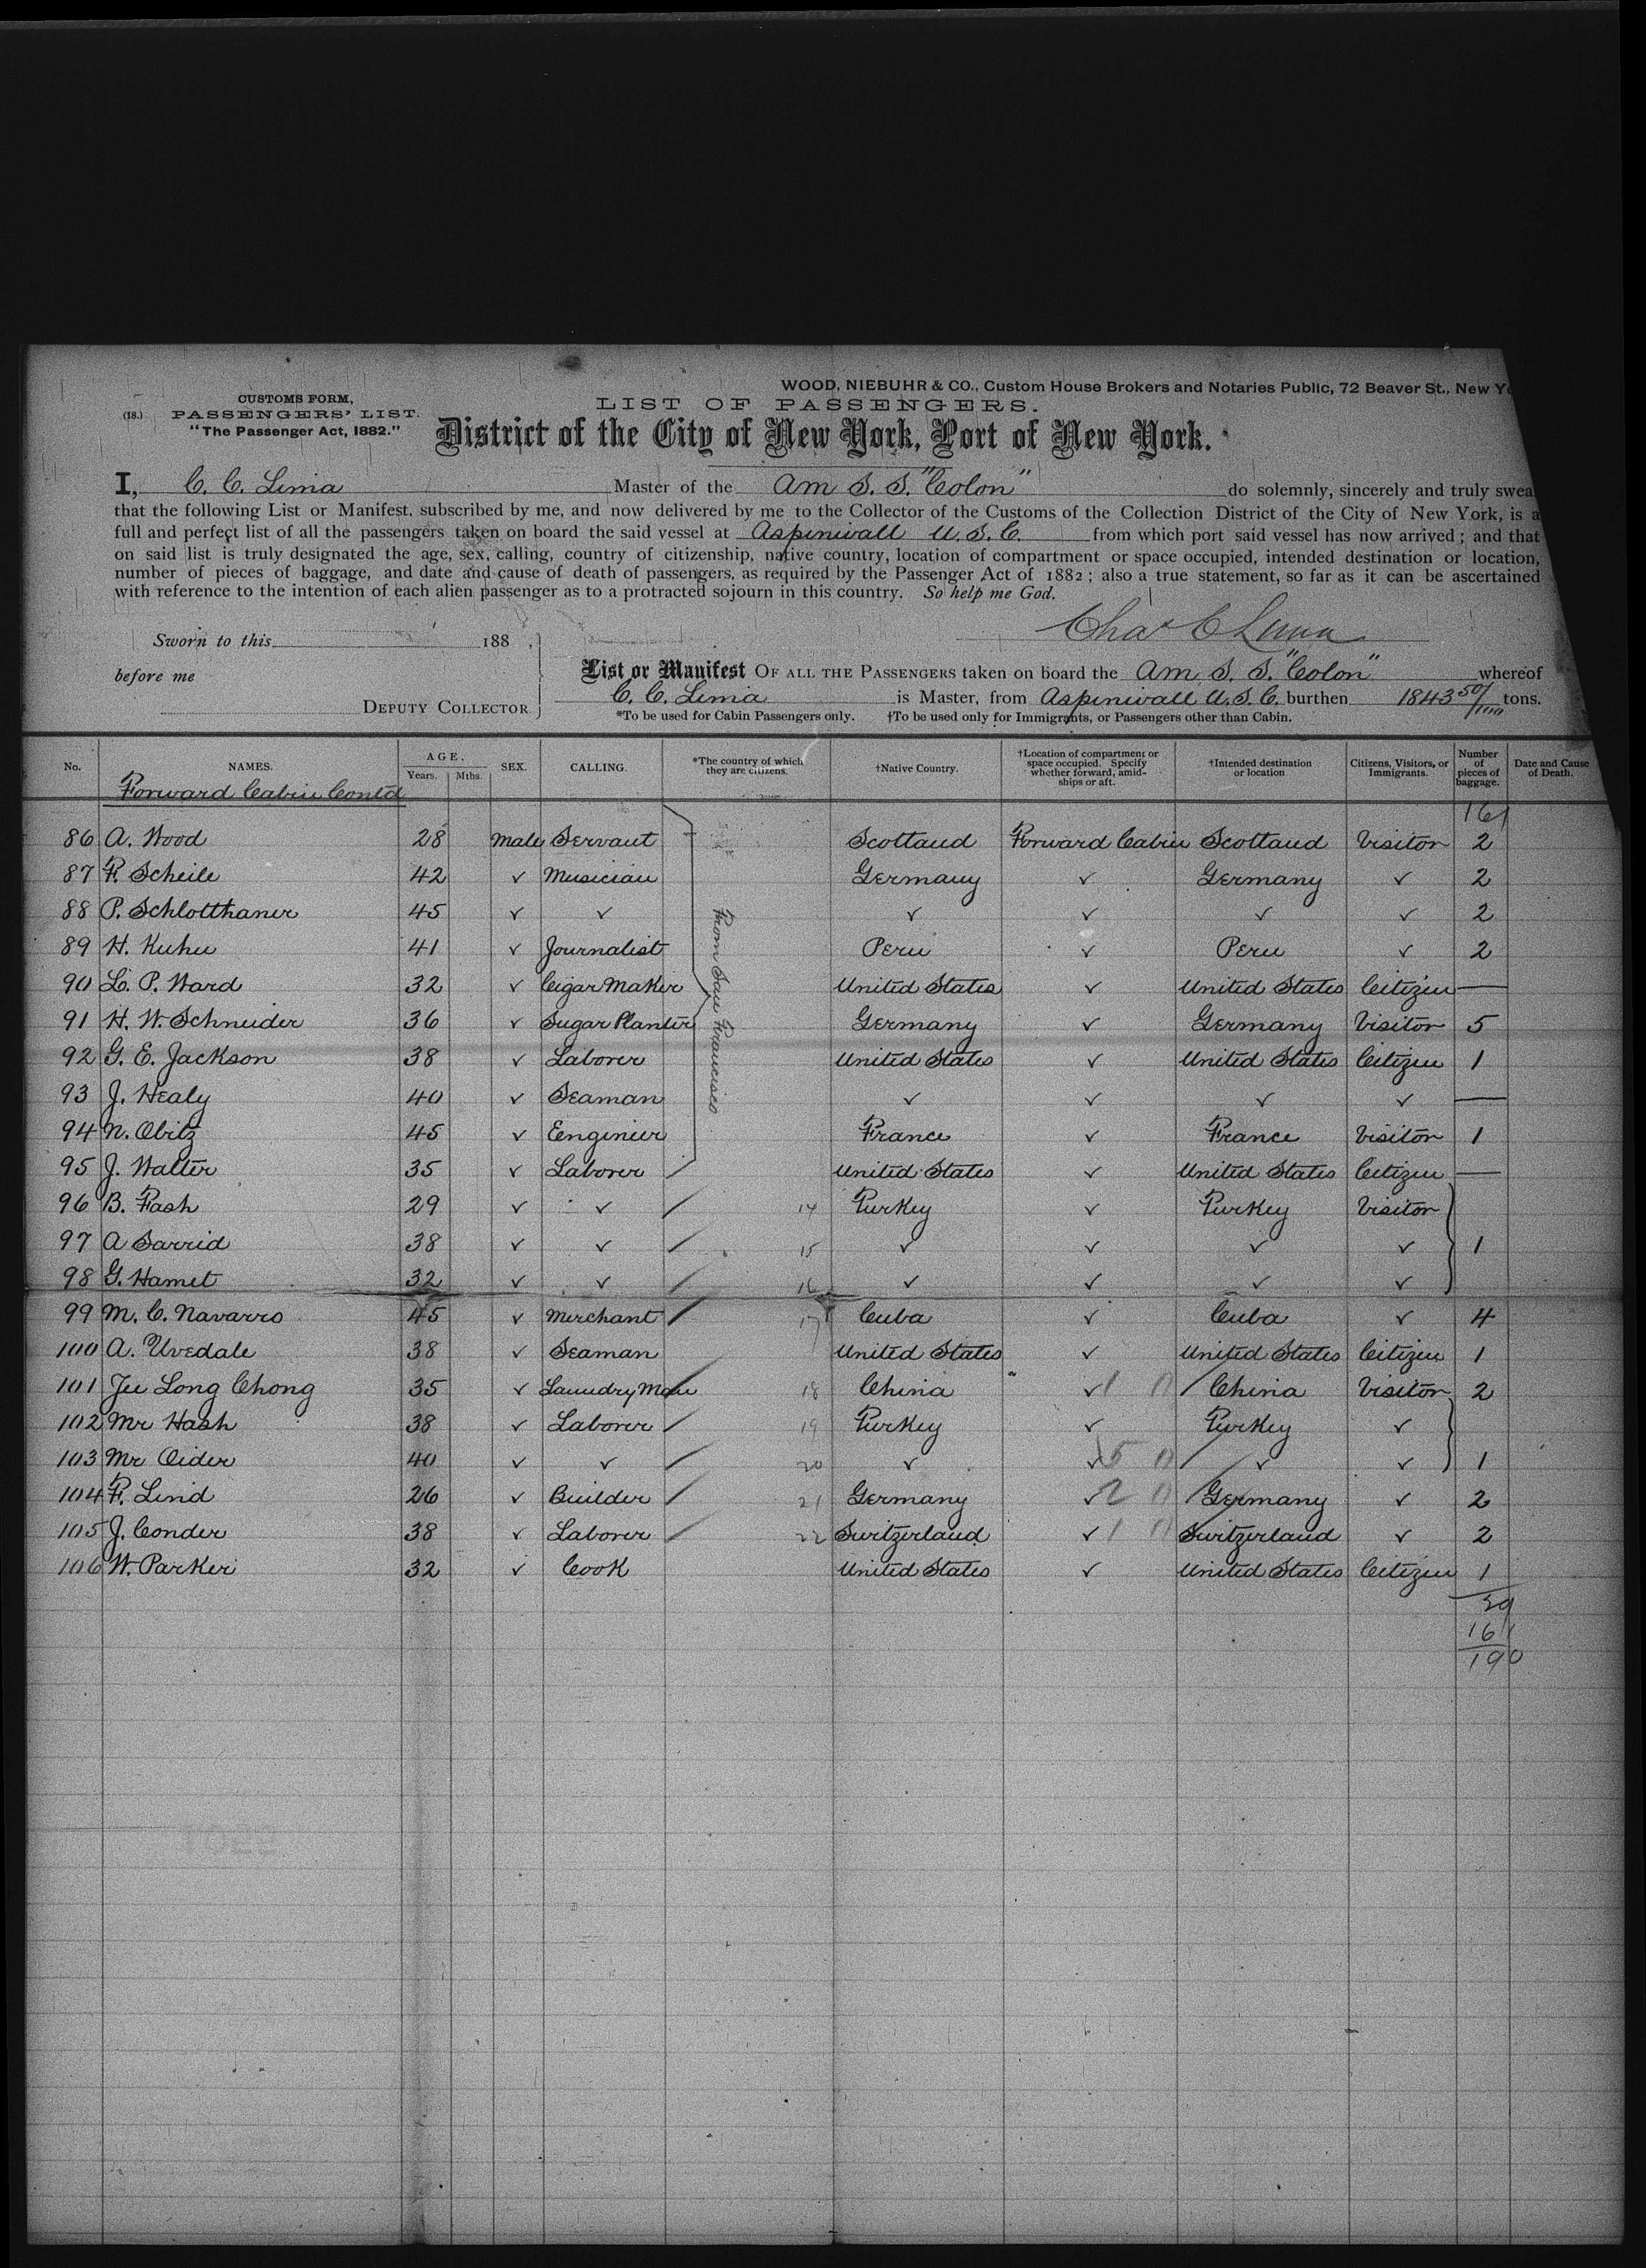 WOOD, NIEBUHR & CO., Custom House Brokers and Notaries Public, 72 Beaver St., New Yo
CUSTOMS FORM,
(18.) PASSENGERS' LIST.
"The Passenger Act, 1882."
LIST OF PASSENGERS.
District of the City of New York, Port of New York.
I, C. C. Lima Master of the Am S. S. "Colon" do solemnly, sincerely and truly swear
that the following List or Manifest, subscribed by me, and now delivered by me to the Collector of the Customs of the Collection District of the City of New York, is a
full and perfect list of all the passengers taken on board the said vessel at Aspinwall U. S. C. from which port said vessel has now arrived; and that
on said list is truly designated the age, sex, calling, country of citizenship, native country, location of compartment or space occupied, intended destination or location,
number of pieces of baggage, and date and cause of death of passengers, as required by the Passenger Act of 1882; also a true statement, so far as it can be ascertained
with reference to the intention of each alien passenger as to a protracted sojourn in this country. So help me God.
Chas C Lima
Sworn to this 188 ,
before me
DEPUTY COLLECTOR
List or Manifest OF ALL THE PASSENGERS taken on board the Am S. S. "Colon" whereof
C. C. Lima is Master, from Aspinwall U. S. C. burthen 1843 50/100 tons.
*To be used for Cabin Passengers only. †To be used only for Immigrants, or Passengers other than Cabin.
No. NAMES. AGE. Years. Mths. SEX. CALLING. *The country of which they are citizens. †Native Country. †Location of compartment or space occupied. Specify whether forward, amidships or aft. †Intended destination or location Citizens, Visitors, or Immigrants. Number of pieces of baggage. Date and Cause of Death.
Forward Cabin Contd
161
From San Francisco
86 A. Wood 28 Male Servant Scotland Forward Cabin Scotland Visitor 2
87 F. Scheile 42 ✓ Musician Germany ✓ Germany ✓ 2
88 P. Schlotthaner 45 ✓ ✓ ✓ ✓ ✓ ✓ 2
89 H. Kuhn 41 ✓ Journalist Peru ✓ Peru ✓ 2
90 L. P. Ward 32 ✓ Cigar Maker United States ✓ United States Citizen —
91 H. W. Schneider 36 ✓ Sugar Planter Germany ✓ Germany Visitor 5
92 G. E. Jackson 38 ✓ Laborer United States ✓ United States Citizen 1
93 J. Healy 40 ✓ Seaman ✓ ✓ ✓ ✓ —
94 N. Obitz 45 ✓ Eengineer France ✓ France Visitor 1
95 J. Walter 35 ✓ Laborer United States ✓ United States Citizen —
96 B. Fash 29 ✓ ✓ 14 Turkey ✓ Turkey Visitor
97 A Sarrid 38 ✓ ✓ 15 ✓ ✓ ✓ ✓ 1
98 G. Hamet 32 ✓ ✓ 16 ✓ ✓ ✓ ✓
99 M. C. Navarro 45 ✓ Merchant 17 Cuba ✓ Cuba ✓ 4
100 A. Uvedale 38 ✓ Seaman United States ✓ United States Citizen 1
101 Jee Long Chong 35 ✓ Laundry Man 18 China ✓ 1 0 China Visitor 2
102 Mr Hash 38 ✓ Laborer 19 Turkey ✓ Turkey ✓
103 Mr Oider 40 ✓ ✓ 20 ✓ ✓ 5 0 ✓ ✓ 1
104 F. Lind 26 ✓ Builder 21 Germany ✓ 2 0 Germany ✓ 2
105 J. Conder 38 ✓ Laborer 22 Switzerland ✓ 1 0 Switzerland ✓ 2
106 W. Parker 32 ✓ Cook United States ✓ United States Citizen 1
29
161
190